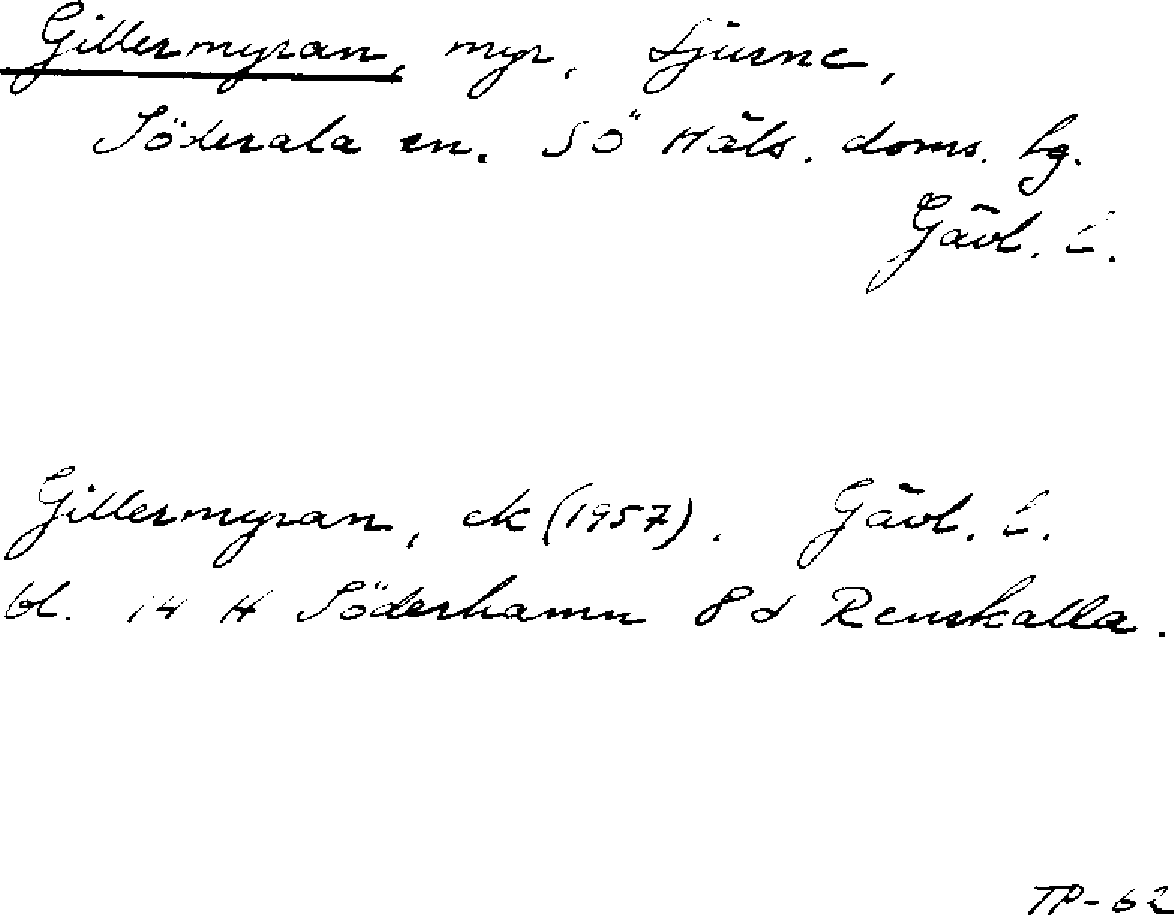 Gillermyran, myr, Ljusne,
Söderala sn. SÖ Häls. doms. hg.
Gävl. l.
Gillermyran, ek (1957). Gävl. l.
bl. 14 H Söderhamn 8d Renskalla.
TP-62